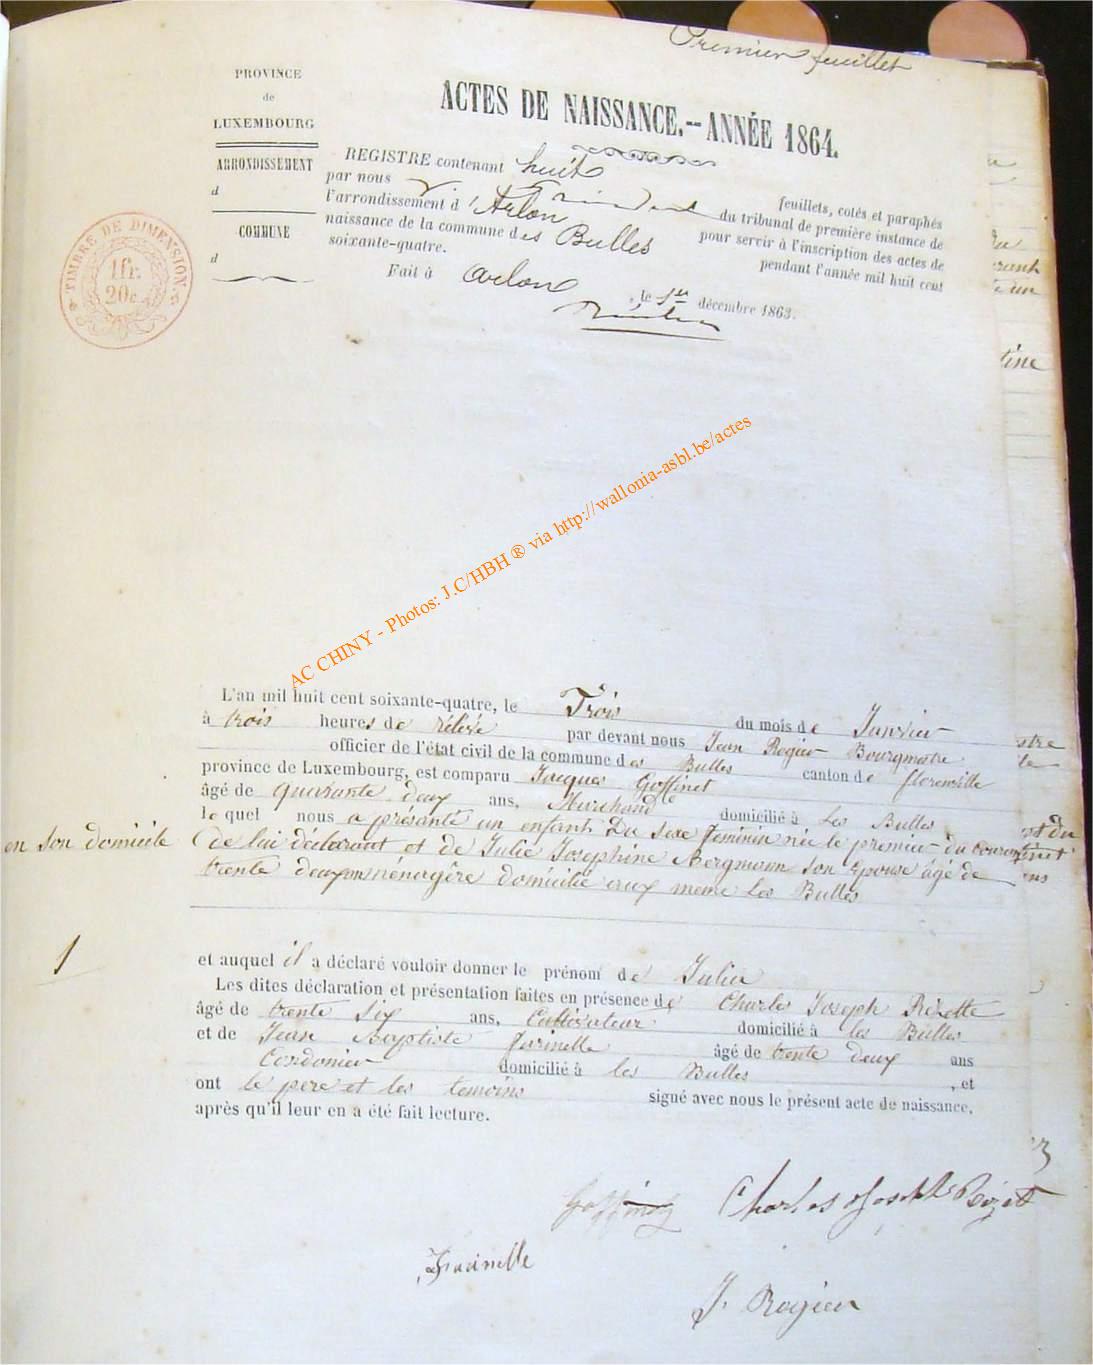 Premier feuillet
PROVINCE
de
LUXEMBOURG
ARRONDISSEMENT
d
COMMUNE
d
TIMBRE DE DIMENSION
1 fr.
20 c.
ACTES DE NAISSANCE.--ANNÉE 1864.
REGISTRE contenant huit feuillets, cotés et paraphés
par nous Président du tribunal de première instance de
l'arrondissement d'Arlon pour servir à l'inscription des actes de
naissance de la commune des Bulles pendant l'année mil huit cent
soixante-quatre.
Fait à Arlon, le 1er décembre 1863.
AC CHINY - Photos: J.C/HBH ® via http://wallonia-asbl.be/actes
L'an mil huit cent soixante-quatre, le Trois du mois de Janvier
à trois heures de rélévé par devant nous Jean Rogier Bourgmestre
officier de l'état civil de la commune des Bulles canton de florenville
province de Luxembourg, est comparu Jacques Goffinet
âgé de quarante deux ans, Marchand domicilié à Les Bulles
le quel nous a présenté un enfant Du sexe feminin née le premier du courant
en son domicile
de lui déclarant et de Julie Josephine Bergmann son épouse âgé de
trente deux ans ménagère domicilié eux meme les Bulles
1
et auquel il a déclaré vouloir donner le prénom de Julie
Les dites déclaration et présentation faites en présence de Charles Joseph Rizette
âgé de trente Six ans, Cultivateur domicilié à les Bulles
et de Jean Baptiste farinelle âgé de trente deux ans
Cordonier domicilié à les Bulles, et
ont le pere et les temoins signé avec nous le présent acte de naissance,
après qu'il leur en a été fait lecture.
Goffinet Charles Joseph Rizet
farinelle
J. Rogier